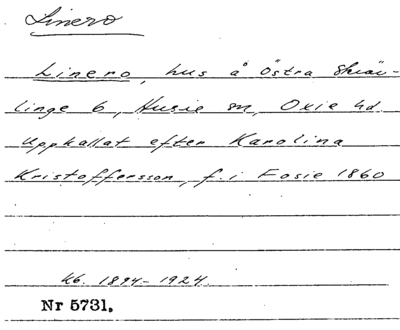 Linero
Linero, hus å Östra Skräv-
linge 6, Husie sn, Oxie hd.
Uppkallat efter Karolina
Kristoffersson, f. i Fosie 1860
Kb. 1894-1924.
Nr 5731.